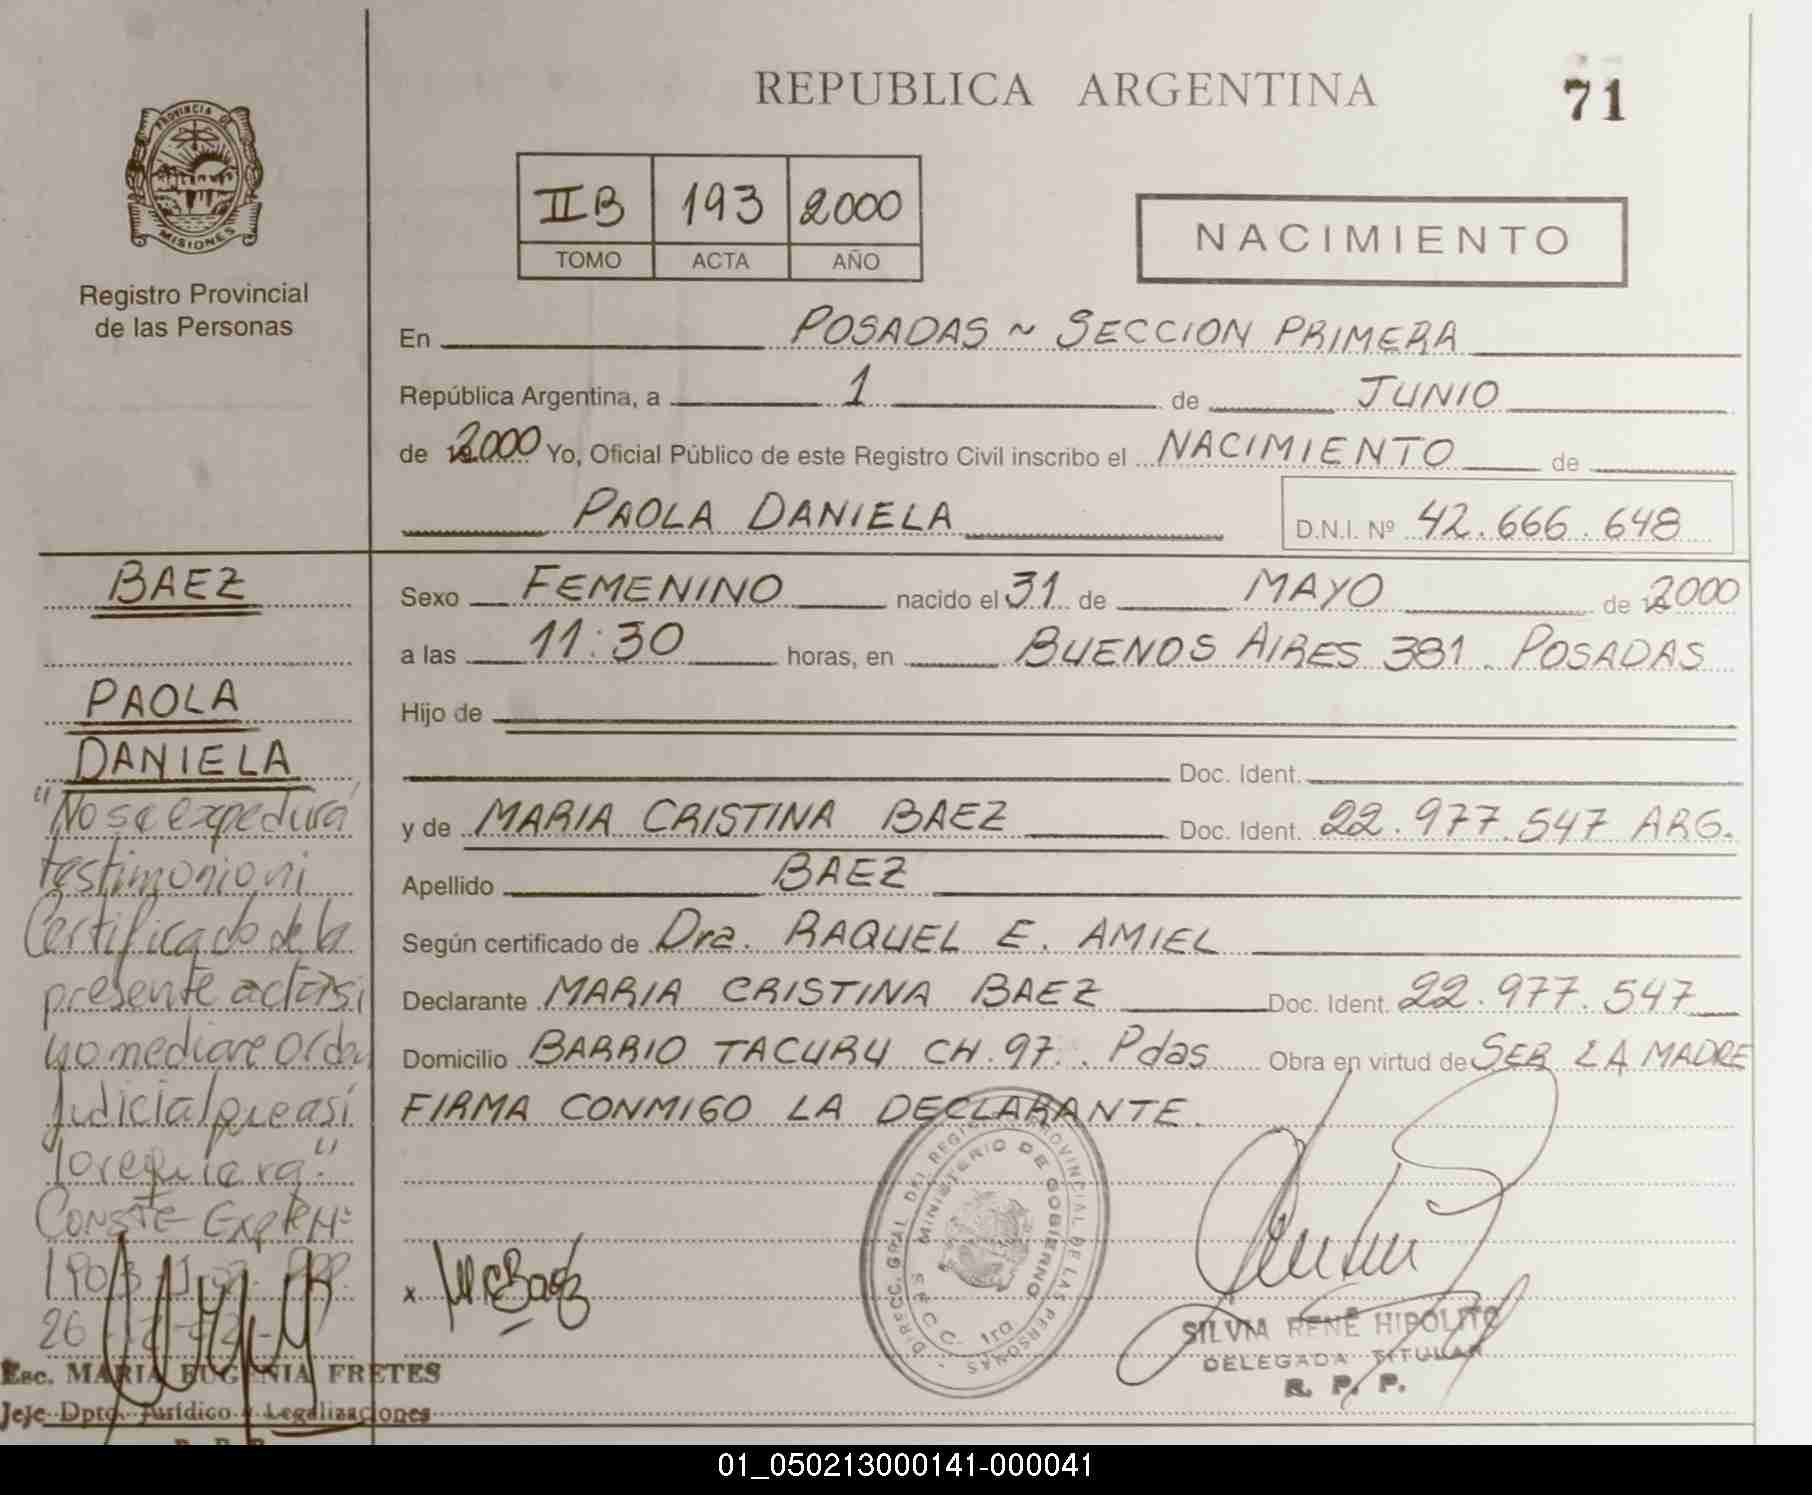 REPUBLICA ARGENTINA
71
PROVINCIA DE
MISIONES
Registro Provincial
de las Personas
IIB 193 2000
TOMO ACTA AÑO
NACIMIENTO
En POSADAS ~ SECCION PRIMERA
República Argentina, a 1 de JUNIO
de 2000 Yo, Oficial Público de este Registro Civil inscribo el NACIMIENTO de
PAOLA DANIELA D.N.I. Nº 42.666.648
BAEZ
PAOLA
DANIELA
"No se expedirá
testimonio ni
Certificado de la
presente acta si
no mediare Orden
Judicial que así
lo requiera."
CONSTE Expte Nº
26
Esc. MARIA EUGENIA FRETES
Jefe Dpto. Jurídico y Legalizaciones
Sexo FEMENINO nacido el 31 de MAYO de 2000
a las 11:30 horas, en BUENOS AIRES 381. POSADAS
Hijo de
Doc. Ident.
y de MARIA CRISTINA BAEZ Doc. Ident. 22.977.547 ARG.
Apellido BAEZ
Según certificado de Dra. RAQUEL E. AMIEL
Declarante MARIA CRISTINA BAEZ Doc. Ident. 22.977.547
Domicilio BARRIO TACURU CH.97. Pdas Obra en virtud de SER LA MADRE
FIRMA CONMIGO LA DECLARANTE.
DIRECC. GRAL DEL REGISTRO PROVINCIAL DE LAS PERSONAS
MINISTERIO DE GOBIERNO
SECC. 1ra
x McBaez
SILVIA RENE HIPOLITO
DELEGADA TITULAR
R. P. P.
01_050213000141-000041